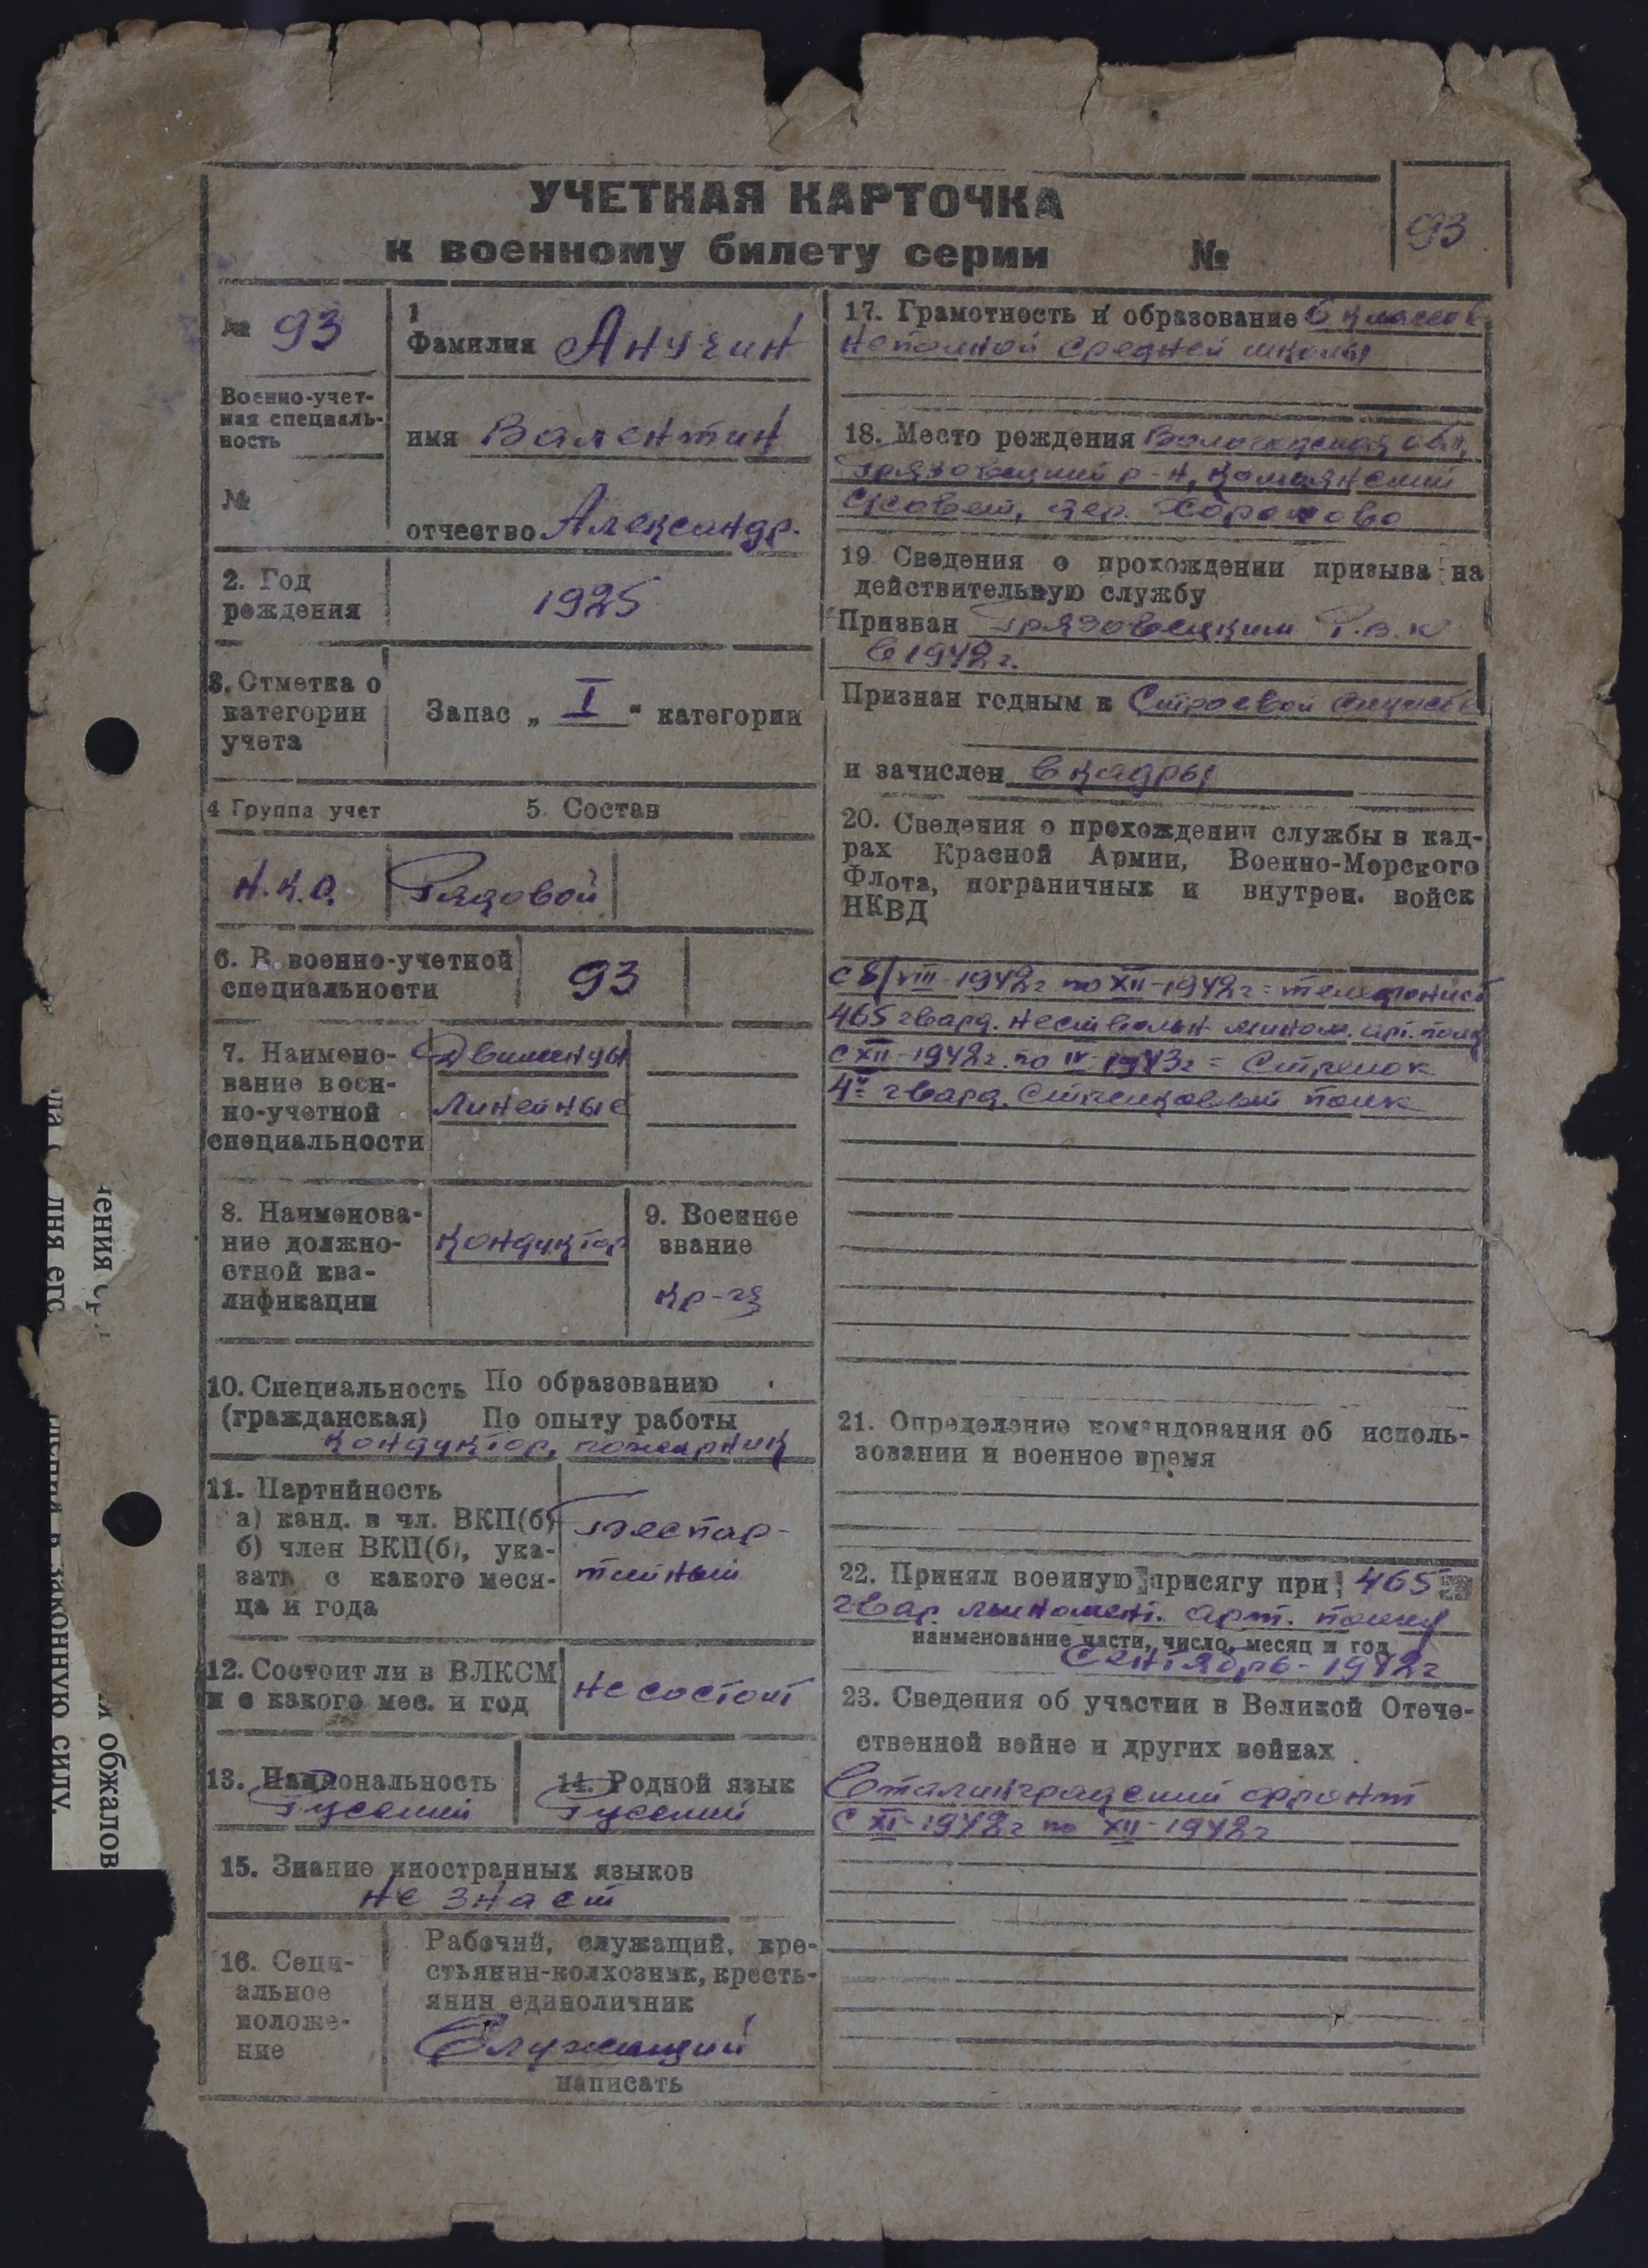 УЧЕТНАЯ КАРТОЧКА
к военному билету серии №
93
№ 93
Военно-учет-
ная специаль-
ность
№
1
Фамилия Анучин
имя Валентин
отчество Александр.
2. Год
рождения
1925
3. Отметка о
категории
учета
Запас „ I " категории
4 Группа учет
5. Состав
Н.К.О.
Рядовой
6. В. военно-учетной
специальности
93
7. Наимено-
вание воен-
но-учетной
специальности
Движенцы
линейные
8. Наименова-
ние должно-
стной ква-
лификации
кондуктор
9. Военное
звание
кр-ц
10. Специальность По образованию
(гражданская) По опыту работы
кондуктор, пожарник
11. Партийность
а) канд. в чл. ВКП(б)
б) член ВКП(б), ука-
зать с какого меся-
ца и года
Беспар-
тийный
12. Состоит ли в ВЛКСМ
и с какого мес. и год
не состоит
13. Национальность
Русский
14. Родной язык
Русский
15. Знание иностранных языков
не знает
16. Соци-
альное
положе-
ние
Рабочий, служащий, кре-
стьянин-колхозник, кресть-
янин единоличник
Служащий
написать
17. Грамотность и образование 6 классов
неполной средней школы
18. Место рождения Вологодская обл,
Грязовецкий р-н,
дер.
19 Сведения о прохождении призыва на
действительную службу
Призван Грязовецким Р.В.К
в 1942 г.
Признан годным к Строевой службе
и зачислен в кадры
20. Сведения о прохождении службы в кад-
рах Красной Армии, Военно-Морского
Флота, пограничных и внутрен. войск
НКВД
с 8/VIII-1942г по XII-1942г = телефонист
465 гвард. мином. арт. полк
с XII-1942г. по IV-1943г = Стрелок
4й гвард. Стрелковый полк
21. Определение командования об исполь-
зовании и военное время
22. Принял военную присягу при 465
гвар. миномет. арт. полку
наименование части, число, месяц и год
Сентябрь-1942г
23. Сведения об участии в Великой Отече-
ственной войне и других войнах
Сталинградский фронт
с XI-1942г по XII-1942г
дня его
законную силу.
и обжалов